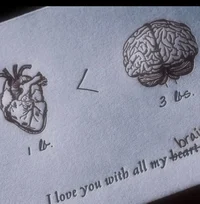 <
1 lb.
3 lbs.
brain
I love you with all my heart